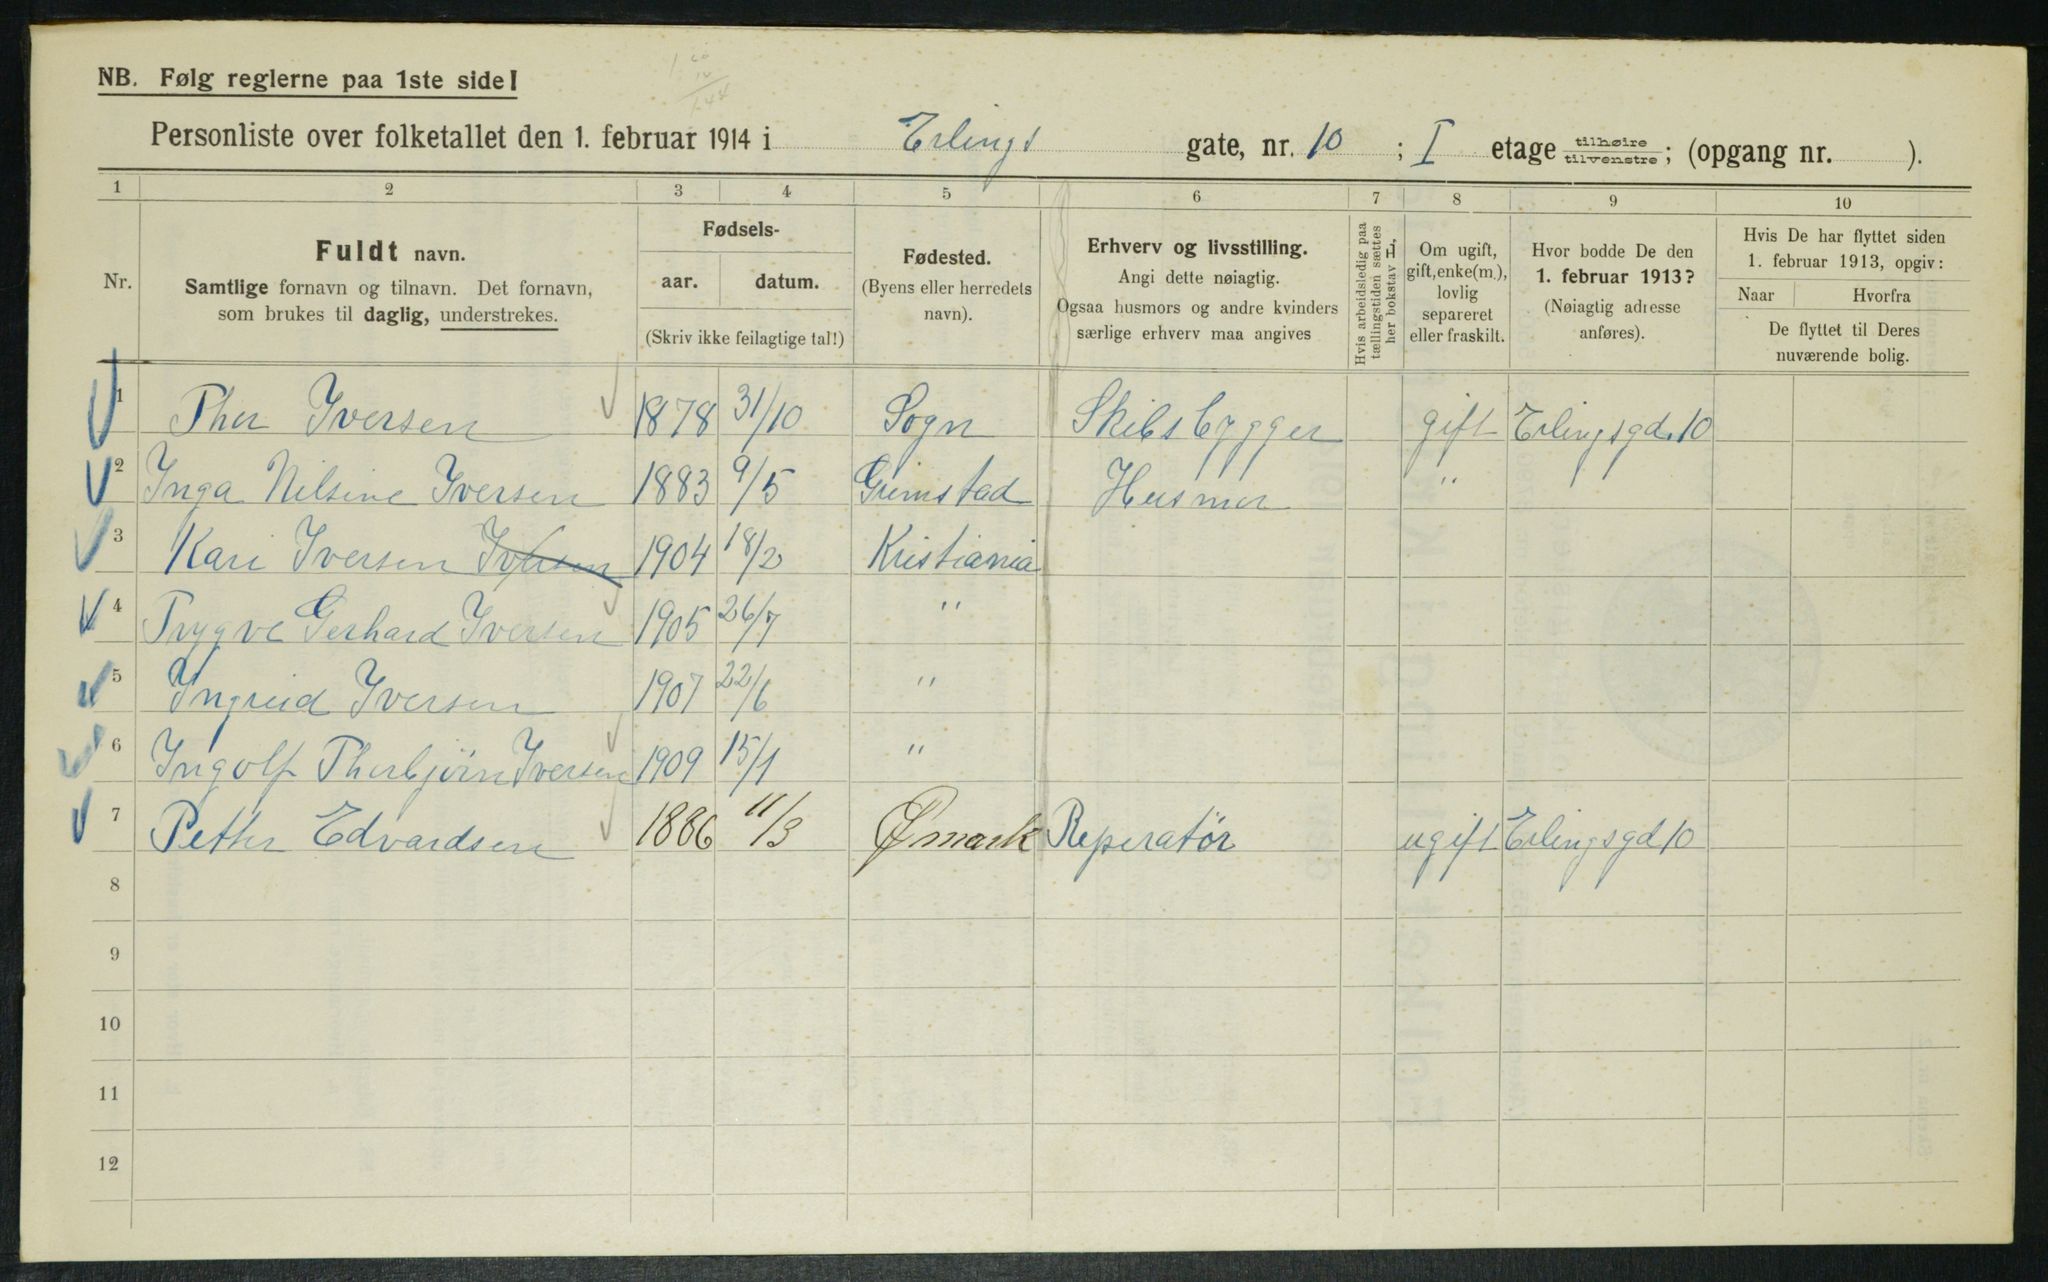 NB. Følg reglerne paa 1ste side!
Personliste over folketallet den 1. februar 1914 i Erlings gate, nr. 10 ; I etage tilhøire tilvenstre ; (opgang nr. ).
1 2 3 4 5 6 7 8 9 10
Nr.
Fuldt navn.
Samtlige fornavn og tilnavn. Det fornavn,
som brukes til daglig, understrekes.
Fødsels-
aar. datum.
(Skriv ikke feilagtige tal!)
Fødested.
(Byens eller herredets
navn).
Erhverv og livsstilling.
Angi dette nøiagtig.
Ogsaa husmors og andre kvinders
særlige erhverv maa angives
Hvis arbeidsledig paa
tællingstiden sættes
her bokstav L.
Om ugift,
gift, enke(m.),
lovlig
separeret
eller fraskilt.
Hvor bodde De den
1. februar 1913?
(Nøiagtig adresse
anføres).
Hvis De har flyttet siden
1. februar 1913, opgiv:
Naar Hvorfra
De flyttet til Deres
nuværende bolig.
1 Ther Iversen 1878 31/10 Sogn Skibsbygger gift Erlingsgd. 10
2 Inga Nilsine Iversen 1883 9/5 Grimstad Husmor "
3 Kari Iversen Iversen 1904 18/2 Kristiania
4 Trygve Gerhard Iversen 1905 26/7 "
5 Ingrid Iversen 1907 22/6 "
6 Ingolf Thorbjørn Iversen 1909 15/1 "
7 Petter Edvardsen 1886 11/3 Ømark Reperatør ugift Erlingsgd 10
8
9
10
11
12